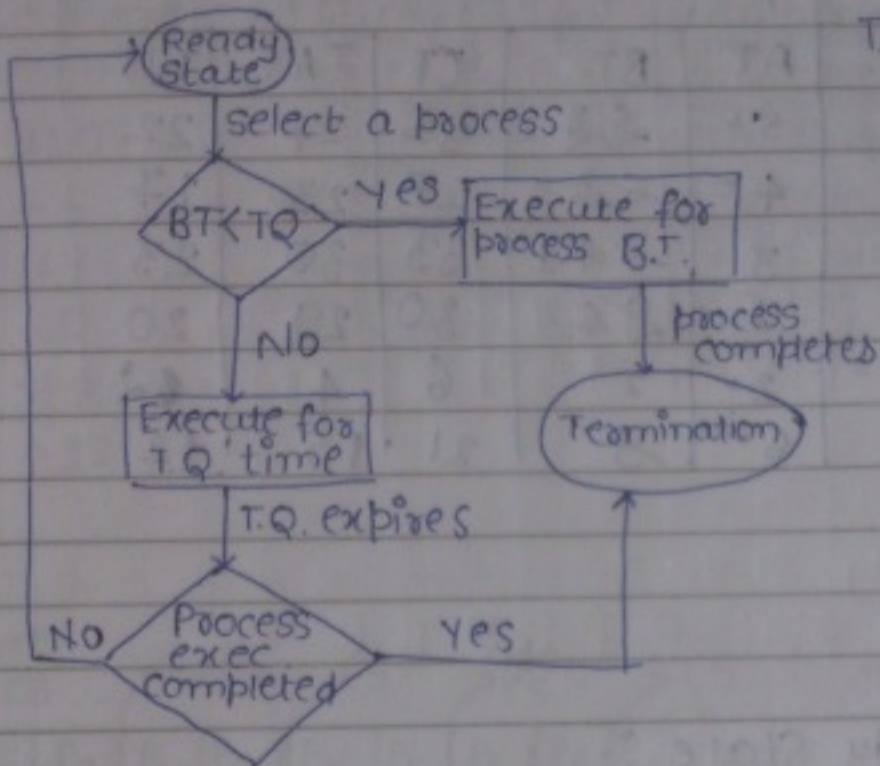 Ready
State
select a process
BT<TQ
Yes
Execute for
process B.T.
No
process
completes
Execute for
T.Q. time
Termination
T.Q. expires
Process
exec.
completed
No
Yes